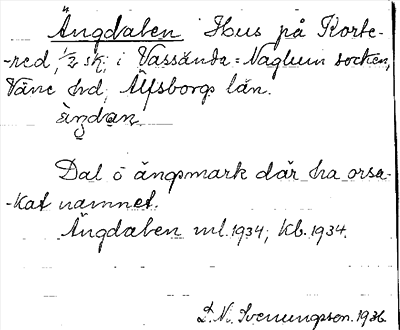 Ängdalen Hus på Korte-
-red, 1/2 sk, i Vassända=Naglum socken,
Väne hd, Älfsborgs län.
àŋdan.
Dal o ängsmark där ha orsa-
-kat namnet.
Ängdalen ml. 1934, Kb. 1934.
D. N. Svenungson. 1936.